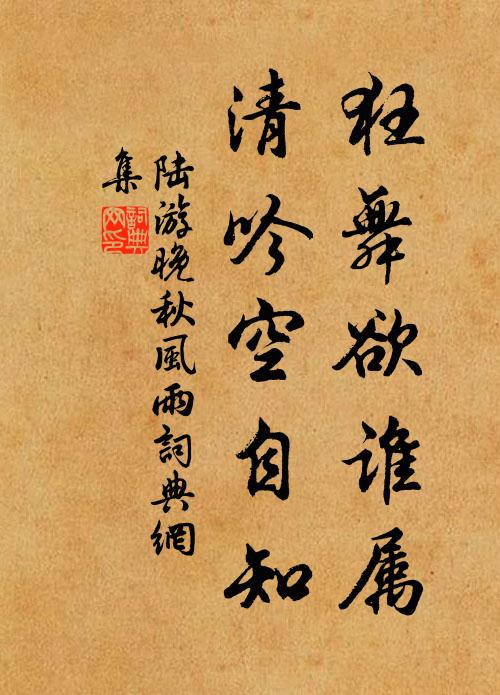 狂舞欲谁属
清吟空自知
陆游晚秋風雨詞典網
集
詞典网印